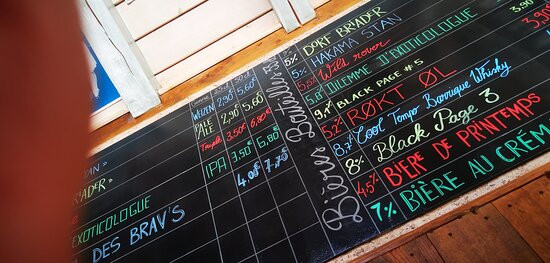 AN »
RADER »
EXOTICOLOGUE
DES BRAV'S
25cl 50cl
WEIZEN 2,90 5,60
PALE ALE 2,90 5,60
Triple 3.50 6,80
IPA 3.50 6,80
4.00 7,70
Bières Bouteilles
5% DORF BRADER
5% HAKAMA STAN
5.5% Wild rover
5,6 DILEMME D'EXOTICOLOGUE
9,1 BLACK PAGE #5
5,2% RØKT ØL
3,7 Cool Tempo Barrique Whisky
8% Black Page 3
4,5% BIÈRE DE PRINTEMPS
7% BIÈRE AU CRÉM
3,90